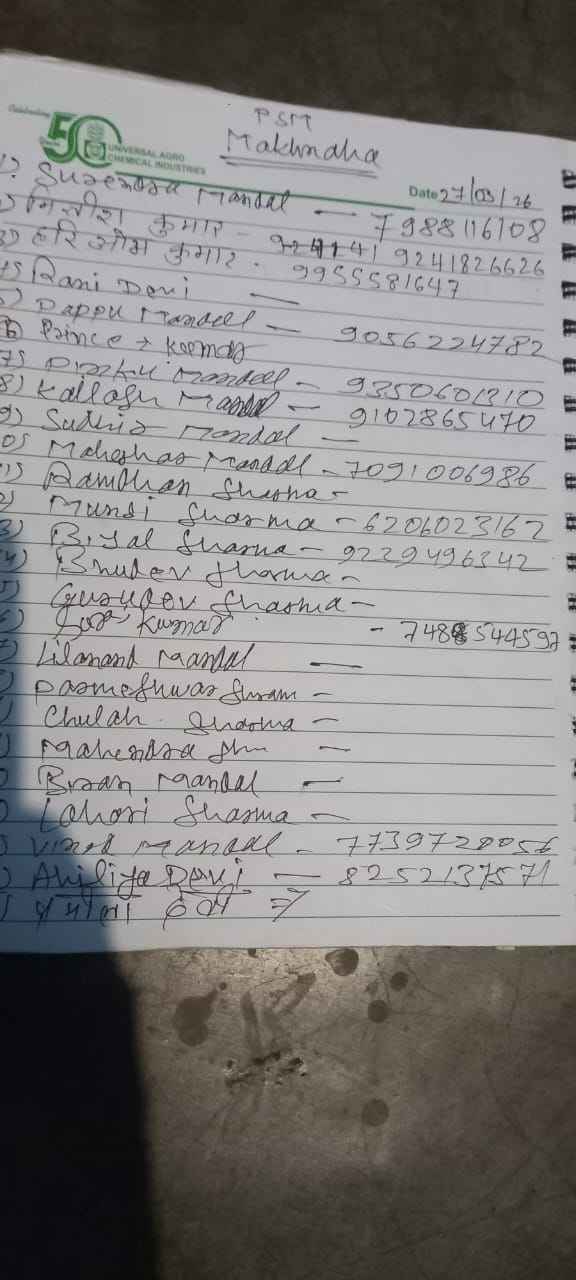 PSM
Makhnaha
Celebrating 50 Years
UNIVERSAL AGRO
CHEMICAL INDUSTRIES
Date 27/03/26
1) Surendra Mandal — 7988116108
कुमार - 9241826626
3) हरि ओम कुमार - 9955581647
4) Rani Devi —
5) Pappu Mandal — 9056224782
6) Prince → Kumar
7) Mandal — 9350601310
8) Mandal — 9102865470
9) Sudhir Mandal —
10) Maheshar Mandal - 7091006986
11) Ramdhan Sharma -
Munsi Sharma - 6206023162
Sharma - 9229496342
Bhudev Sharma -
Gurudev Sharma -
Kumar - 7488544597
Lilanand Mandal —
Parmeshwar -
Chulah Sharma -
Mahendra —
Mandal -
Lahori Sharma -
Vinod Mandal - 7739720056
Devi — 8252137571